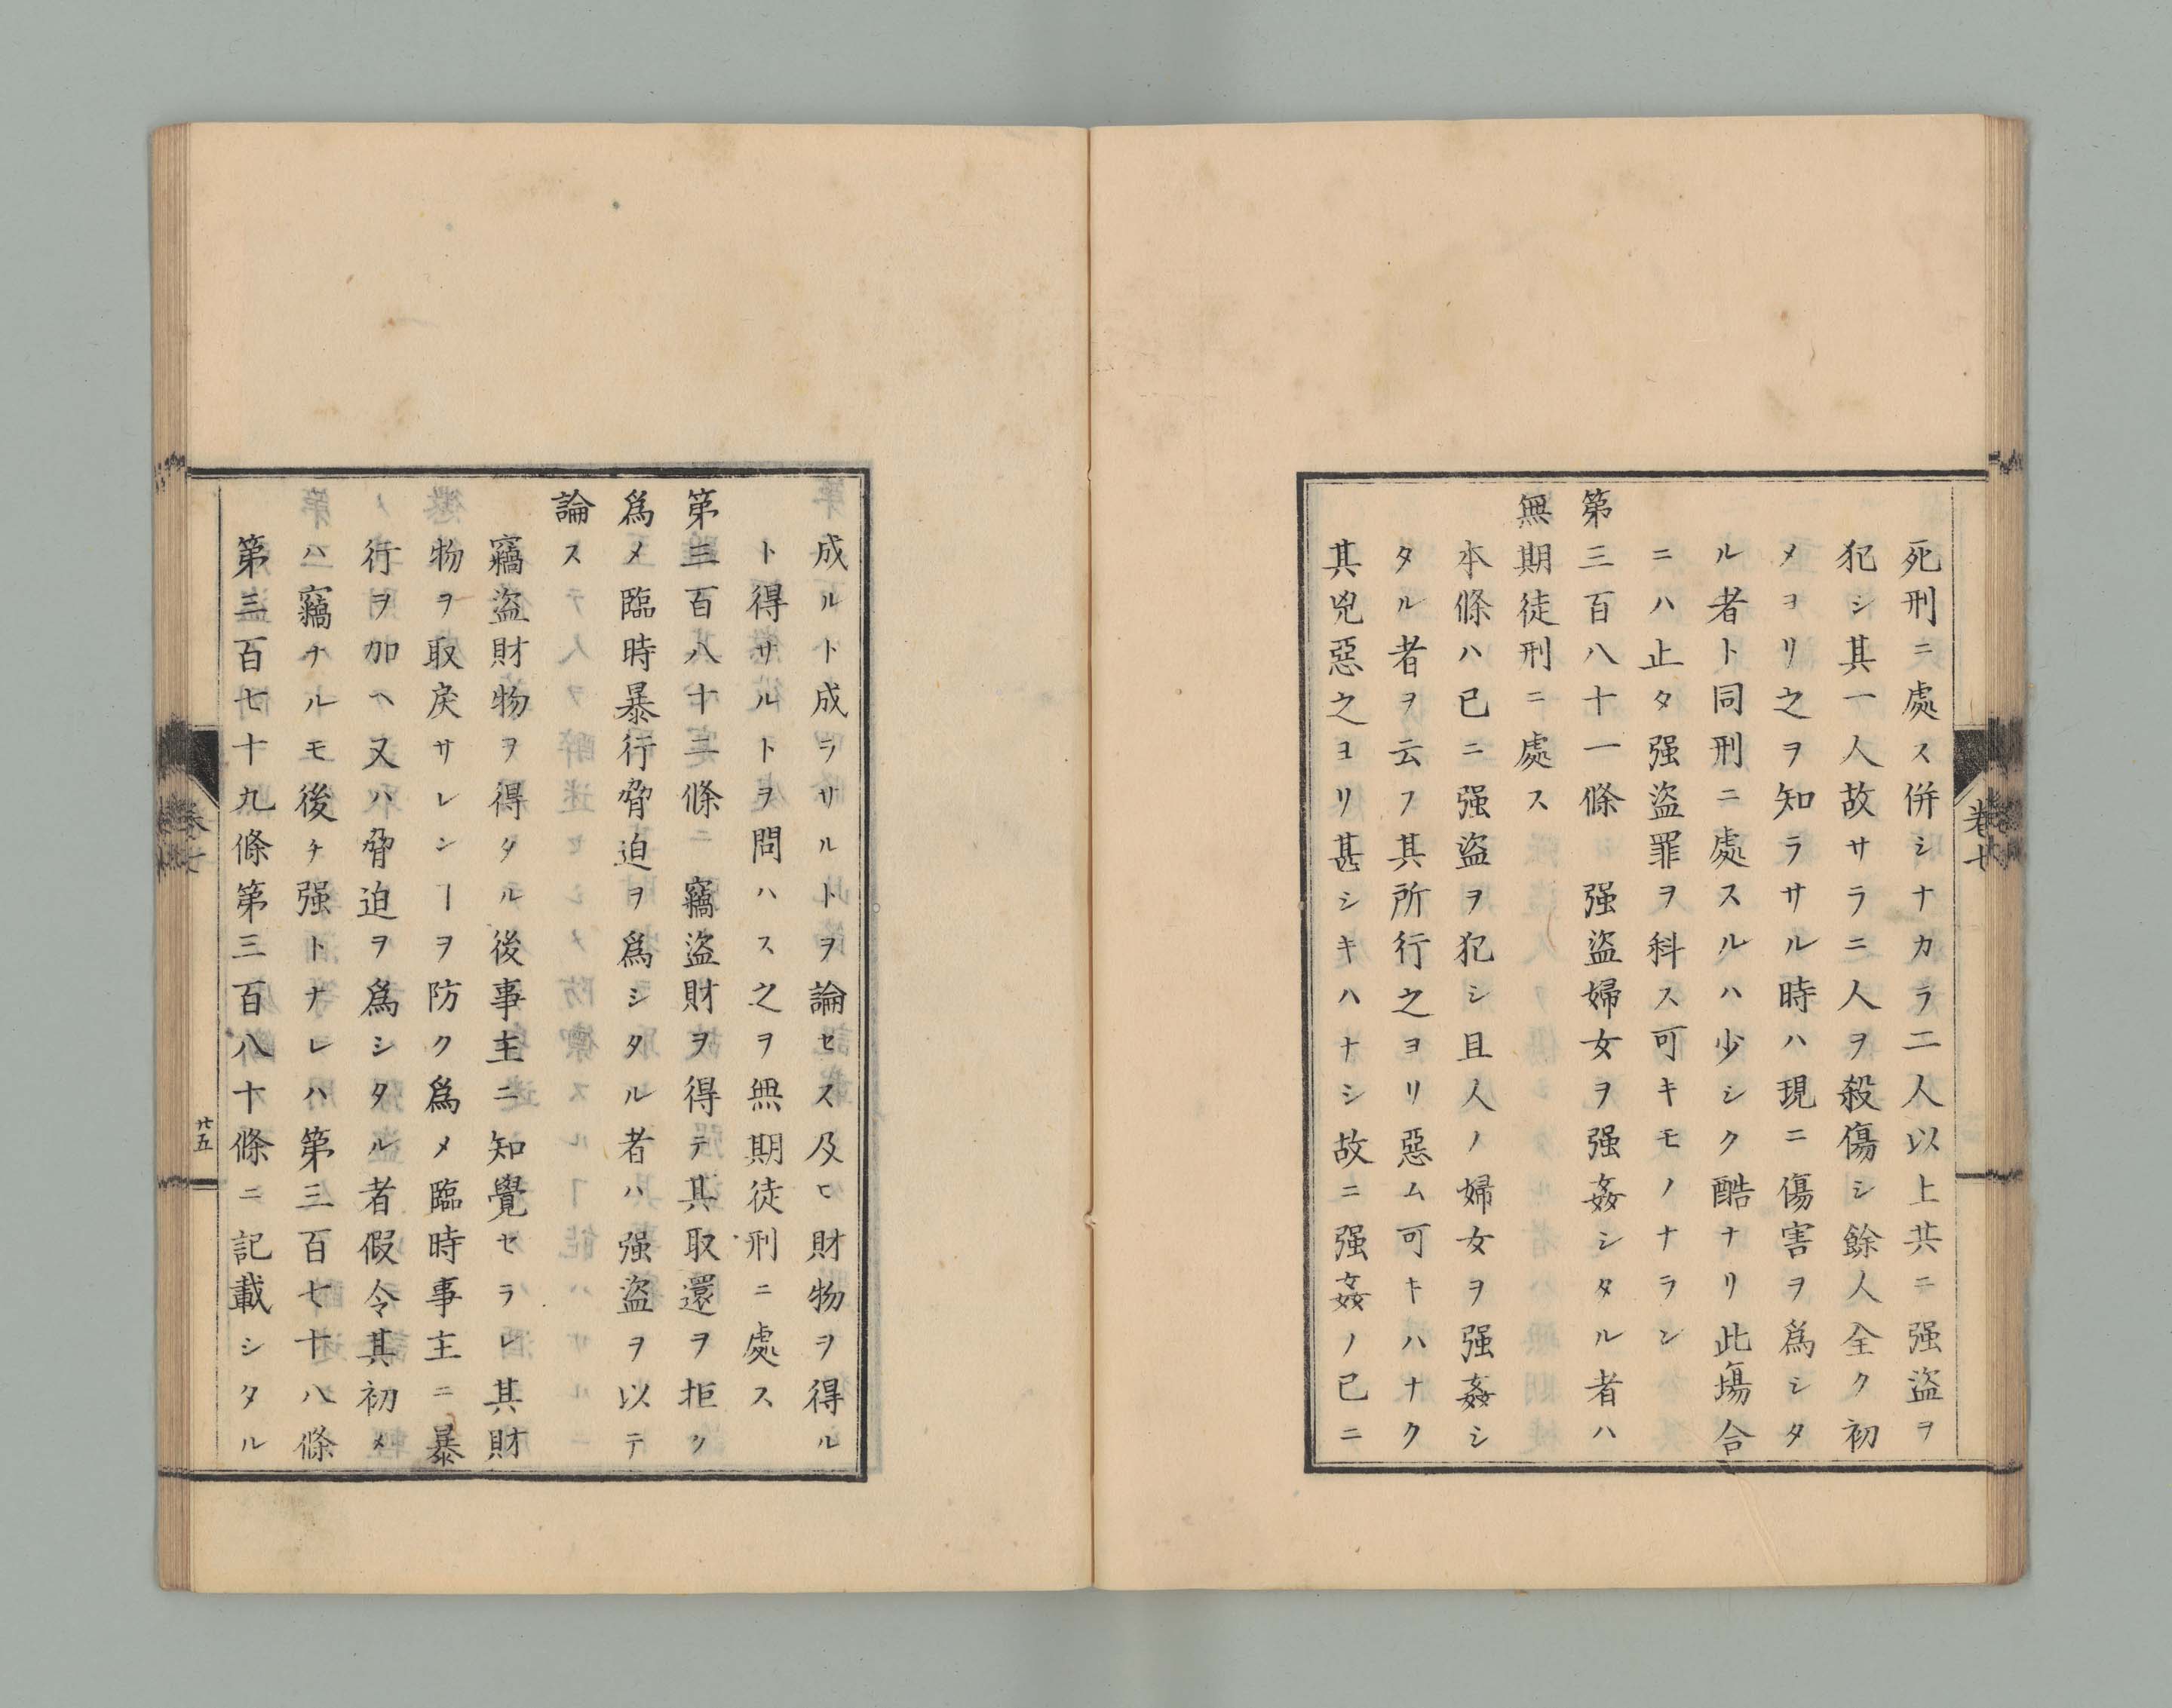 死刑ニ處ス併シナカラ二人以上共ニ强盜ヲ
犯シ其一人故サラニ人ヲ殺傷シ餘人全ク初
メヨリ之ヲ知ラサル時ハ現ニ傷害ヲ爲シタ
ル者ト同刑ニ處スルハ少シク酷ナリ此塲合
ニハ止タ强盜罪ヲ科ス可キモノナラン
第三百八十一條 强盜婦女ヲ强姦シタル者ハ
無期徒刑ニ處ス
本條ハ已ニ强盜ヲ犯シ且人ノ婦女ヲ强姦シ
タル者ヲ云フ其所行之ヨリ惡ム可キハナク
其兇惡之ヨリ甚シキハナシ故ニ强姦ノ已ニ
卷七
成ルト成ラサルトヲ論セス及ヒ財物ヲ得ル
ト得サルトヲ問ハス之ヲ無期徒刑ニ處ス
第三百八十二條 竊盜財ヲ得テ其取還ヲ拒ク
爲メ臨時暴行脅迫ヲ爲シタル者ハ强盜ヲ以テ
論ス
竊盜財物ヲ得タル後事主ニ知覺セラレ其財
物ヲ取戾サレンヿヲ防ク爲メ臨時事主ニ暴
行ヲ加ヘ又ハ脅迫ヲ爲シタル者假令其初メ
ハ竊ナルモ後チ强トナレハ第三百七十八條
第三百七十九條第三百八十條ニ記載シタル
卷七
廿五